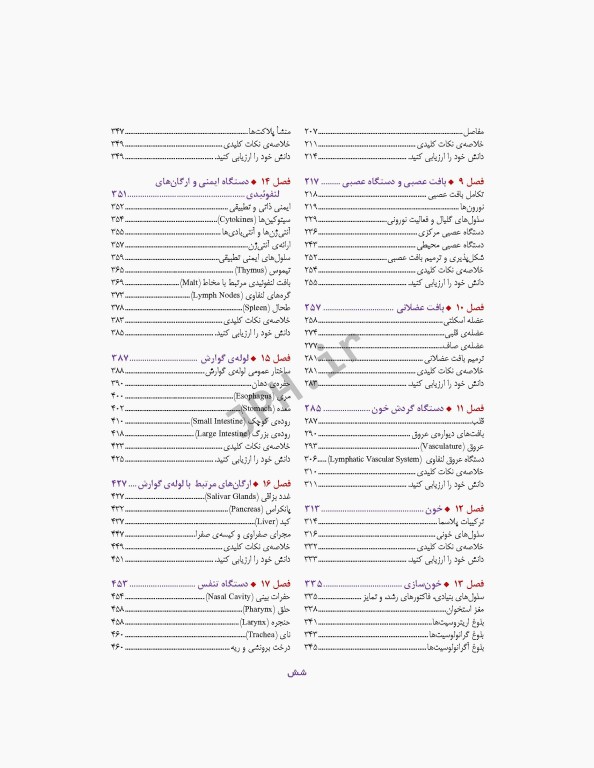 مفاصل ۲۰۷
خلاصه‌ی نکات کلیدی ۲۱۱
دانش خود را ارزیابی کنید. ۲۱۴
فصل ۹ ◆ بافت عصبی و دستگاه عصبی ۲۱۷
تکامل بافت عصبی ۲۱۸
نورون‌ها ۲۱۹
سلول‌های گلیال و فعالیت نورونی ۲۲۹
دستگاه عصبی مرکزی ۲۳۶
دستگاه عصبی محیطی ۲۴۳
شکل‌پذیری و ترمیم بافت عصبی ۲۵۲
خلاصه‌ی نکات کلیدی ۲۵۴
دانش خود را ارزیابی کنید. ۲۵۵
فصل ۱۰ ◆ بافت عضلانی ۲۵۷
عضله اسکلتی ۲۵۸
عضله‌ی قلبی ۲۷۴
عضله‌ی صاف ۲۷۷
ترمیم بافت عضلانی ۲۸۱
خلاصه‌ی نکات کلیدی ۲۸۱
دانش خود را ارزیابی کنید. ۲۸۳
فصل ۱۱ ◆ دستگاه گردش خون ۲۸۵
قلب ۲۸۷
بافت‌های دیواره‌ی عروق ۲۹۰
عروق (Vasculature) ۲۹۳
دستگاه عروق لنفاوی (Lymphatic Vascular System) ۳۰۶
خلاصه‌ی نکات کلیدی ۳۱۰
دانش خود را ارزیابی کنید. ۳۱۱
فصل ۱۲ ◆ خون ۳۱۳
ترکیبات پلاسما ۳۱۴
سلول‌های خونی ۳۱۶
خلاصه‌ی نکات کلیدی ۳۳۲
دانش خود را ارزیابی کنید. ۳۳۳
فصل ۱۳ ◆ خون‌سازی ۳۳۵
سلول‌های بنیادی، فاکتورهای رشد، و تمایز ۳۳۵
مغز استخوان ۳۳۸
بلوغ اریتروسیت‌ها ۳۴۱
بلوغ گرانولوسیت‌ها ۳۴۳
بلوغ آگرانولوسیت‌ها ۳۴۵
منشأ پلاکت‌ها ۳۴۷
خلاصه‌ی نکات کلیدی ۳۴۹
دانش خود را ارزیابی کنید. ۳۴۹
فصل ۱۴ ◆ دستگاه ایمنی و ارگان‌های
لنفوئیدی ۳۵۱
ایمنی ذاتی و تطبیقی ۳۵۲
سیتوکین‌ها (Cytokines) ۳۵۴
آنتی‌ژن‌ها و آنتی‌بادی‌ها ۳۵۵
ارائه‌ی آنتی‌ژن ۳۵۷
سلول‌های ایمنی تطبیقی ۳۵۹
تیموس (Thymus) ۳۶۵
بافت لنفوئیدی مرتبط با مخاط (Malt) ۳۶۹
گره‌های لنفاوی (Lymph Nodes) ۳۷۳
طحال (Spleen) ۳۷۸
خلاصه‌ی نکات کلیدی ۳۸۳
دانش خود را ارزیابی کنید. ۳۸۵
فصل ۱۵ ◆ لوله‌ی گوارش ۳۸۷
ساختار عمومی لوله‌ی گوارش ۳۸۸
حفره‌ی دهان ۳۹۰
مری (Esophagus) ۴۰۰
معده (Stomach) ۴۰۲
روده‌ی کوچک (Small Intestine) ۴۱۰
روده‌ی بزرگ (Large Intestine) ۴۱۸
خلاصه‌ی نکات کلیدی ۴۲۳
دانش خود را ارزیابی کنید. ۴۲۵
فصل ۱۶ ◆ ارگان‌های مرتبط با لوله‌ی گوارش ۴۲۷
غدد بزاقی (Salivar Glands) ۴۲۷
پانکراس (Pancreas) ۴۳۲
کبد (Liver) ۴۳۷
مجرای صفراوی و کیسه‌ی صفرا ۴۴۷
خلاصه‌ی نکات کلیدی ۴۴۹
دانش خود را ارزیابی کنید. ۴۵۱
فصل ۱۷ ◆ دستگاه تنفس ۴۵۳
حفرات بینی (Nasal Cavity) ۴۵۴
حلق (Pharynx) ۴۵۸
حنجره (Larynx) ۴۵۸
نای (Trachea) ۴۶۰
درخت برونشی و ریه ۴۶۰
شش
JPH.ir